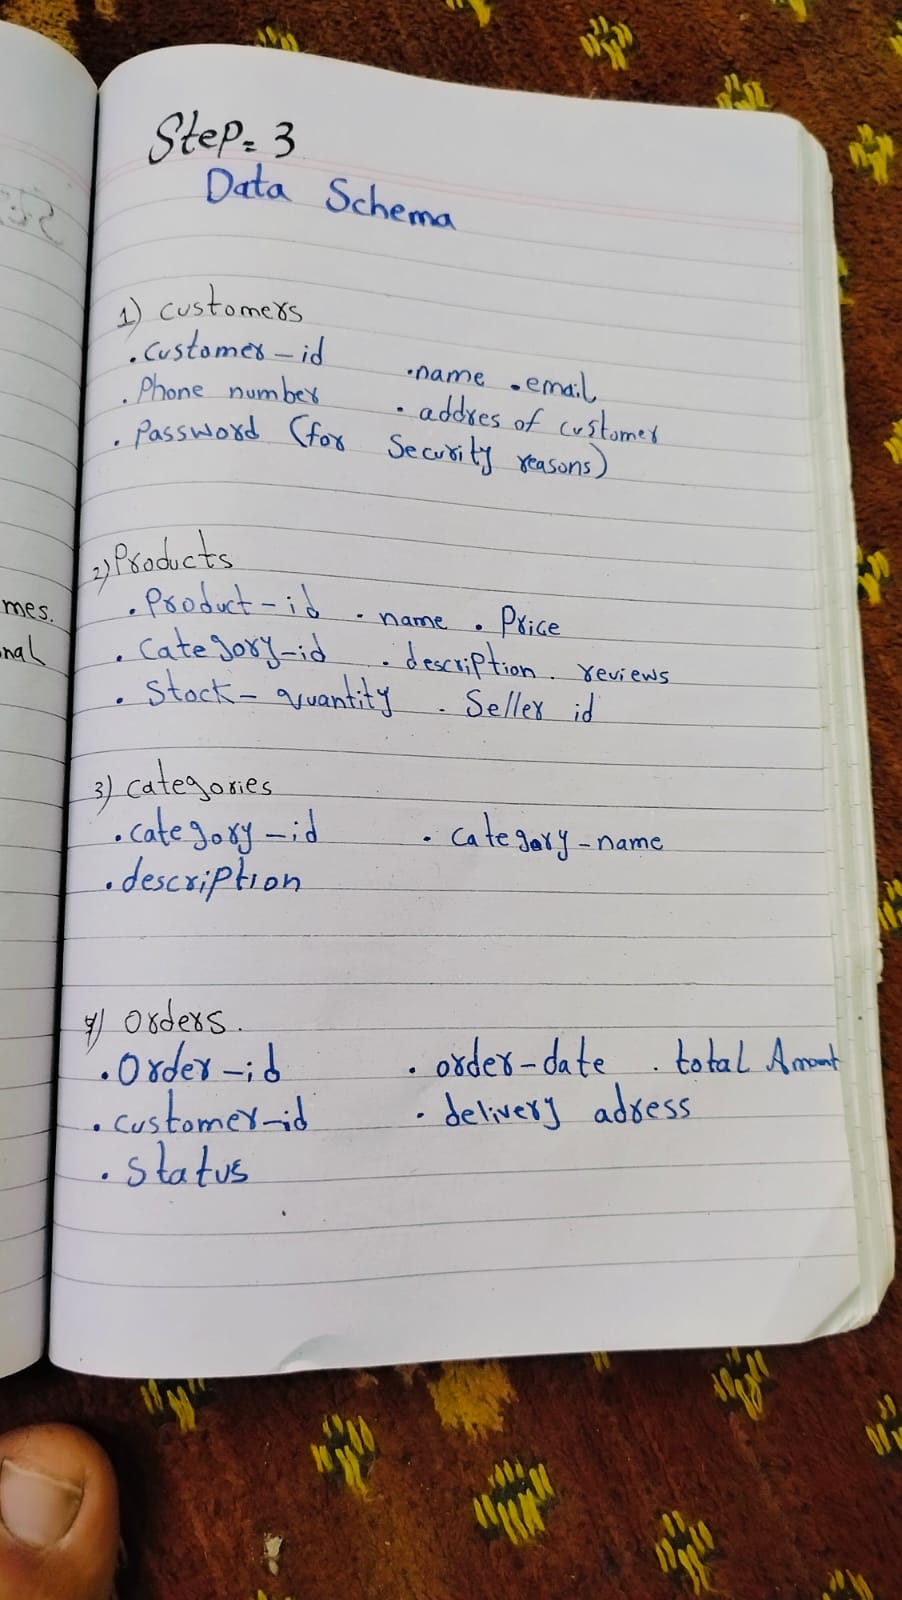 Step = 3
Data Schema
1) customers
. Customer - id . name . email
. Phone number . addres of customer
. Password (for Security reasons)
2) Products
. Product - id . name . Price
. Category - id . description . reviews
. Stock - quantity . Seller id
3) categories
. category - id . category - name
. description
4) Orders.
. Order - id . order - date . total Amount
. customer - id . delivery adress
. Status
mes.
nal